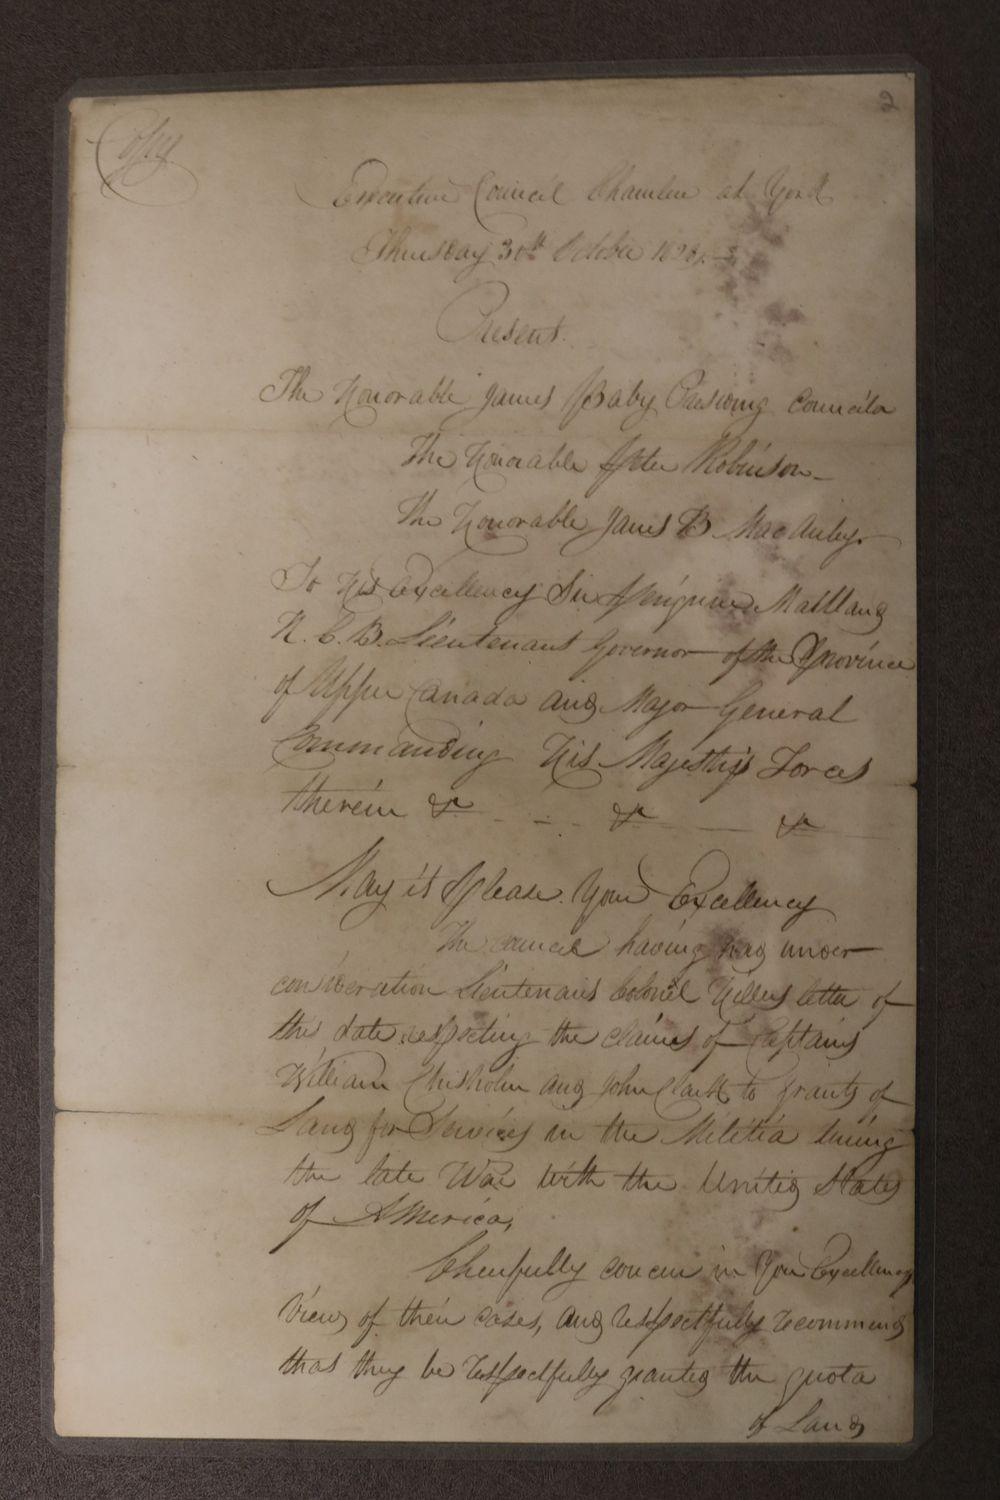 2
Copy
Executive Council Chamber at York
Thursday 30th October 182
Present.
The Honorable James Baby Presiding Councilor
The Honorable Peter Robinson
The Honorable James B MacAulay.
To His Excellency Sir Peregrine Maitland
K. C. B. Lieutenant Governor of the Province
of Upper Canada and Major General
Commanding His Majesty's Forces
therein &c - - - &c — &c
May it Please Your Excellency
The council having had under
consideration Lieutenant Colonel Hilliers letter of
this date respecting the claims of Captains
William Chisholm and John Clark to grants of
Land for Services in the Militia during
the late War with the United States
of America,
Cheerfully concur in Your Excellencys
View of their cases, and respectfully recommend
that they be respectfully granted the quota
of Land